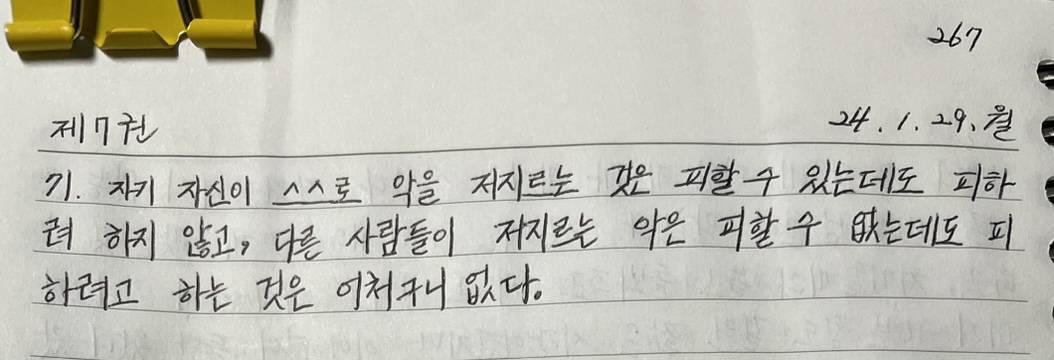 267
제7권 24.1.29.월
71. 자기 자신이 스스로 악을 저지르는 것은 피할 수 있는데도 피하
려 하지 않고, 다른 사람들이 저지르는 악은 피할 수 없는데도 피
하려고 하는 것은 어처구니 없다.